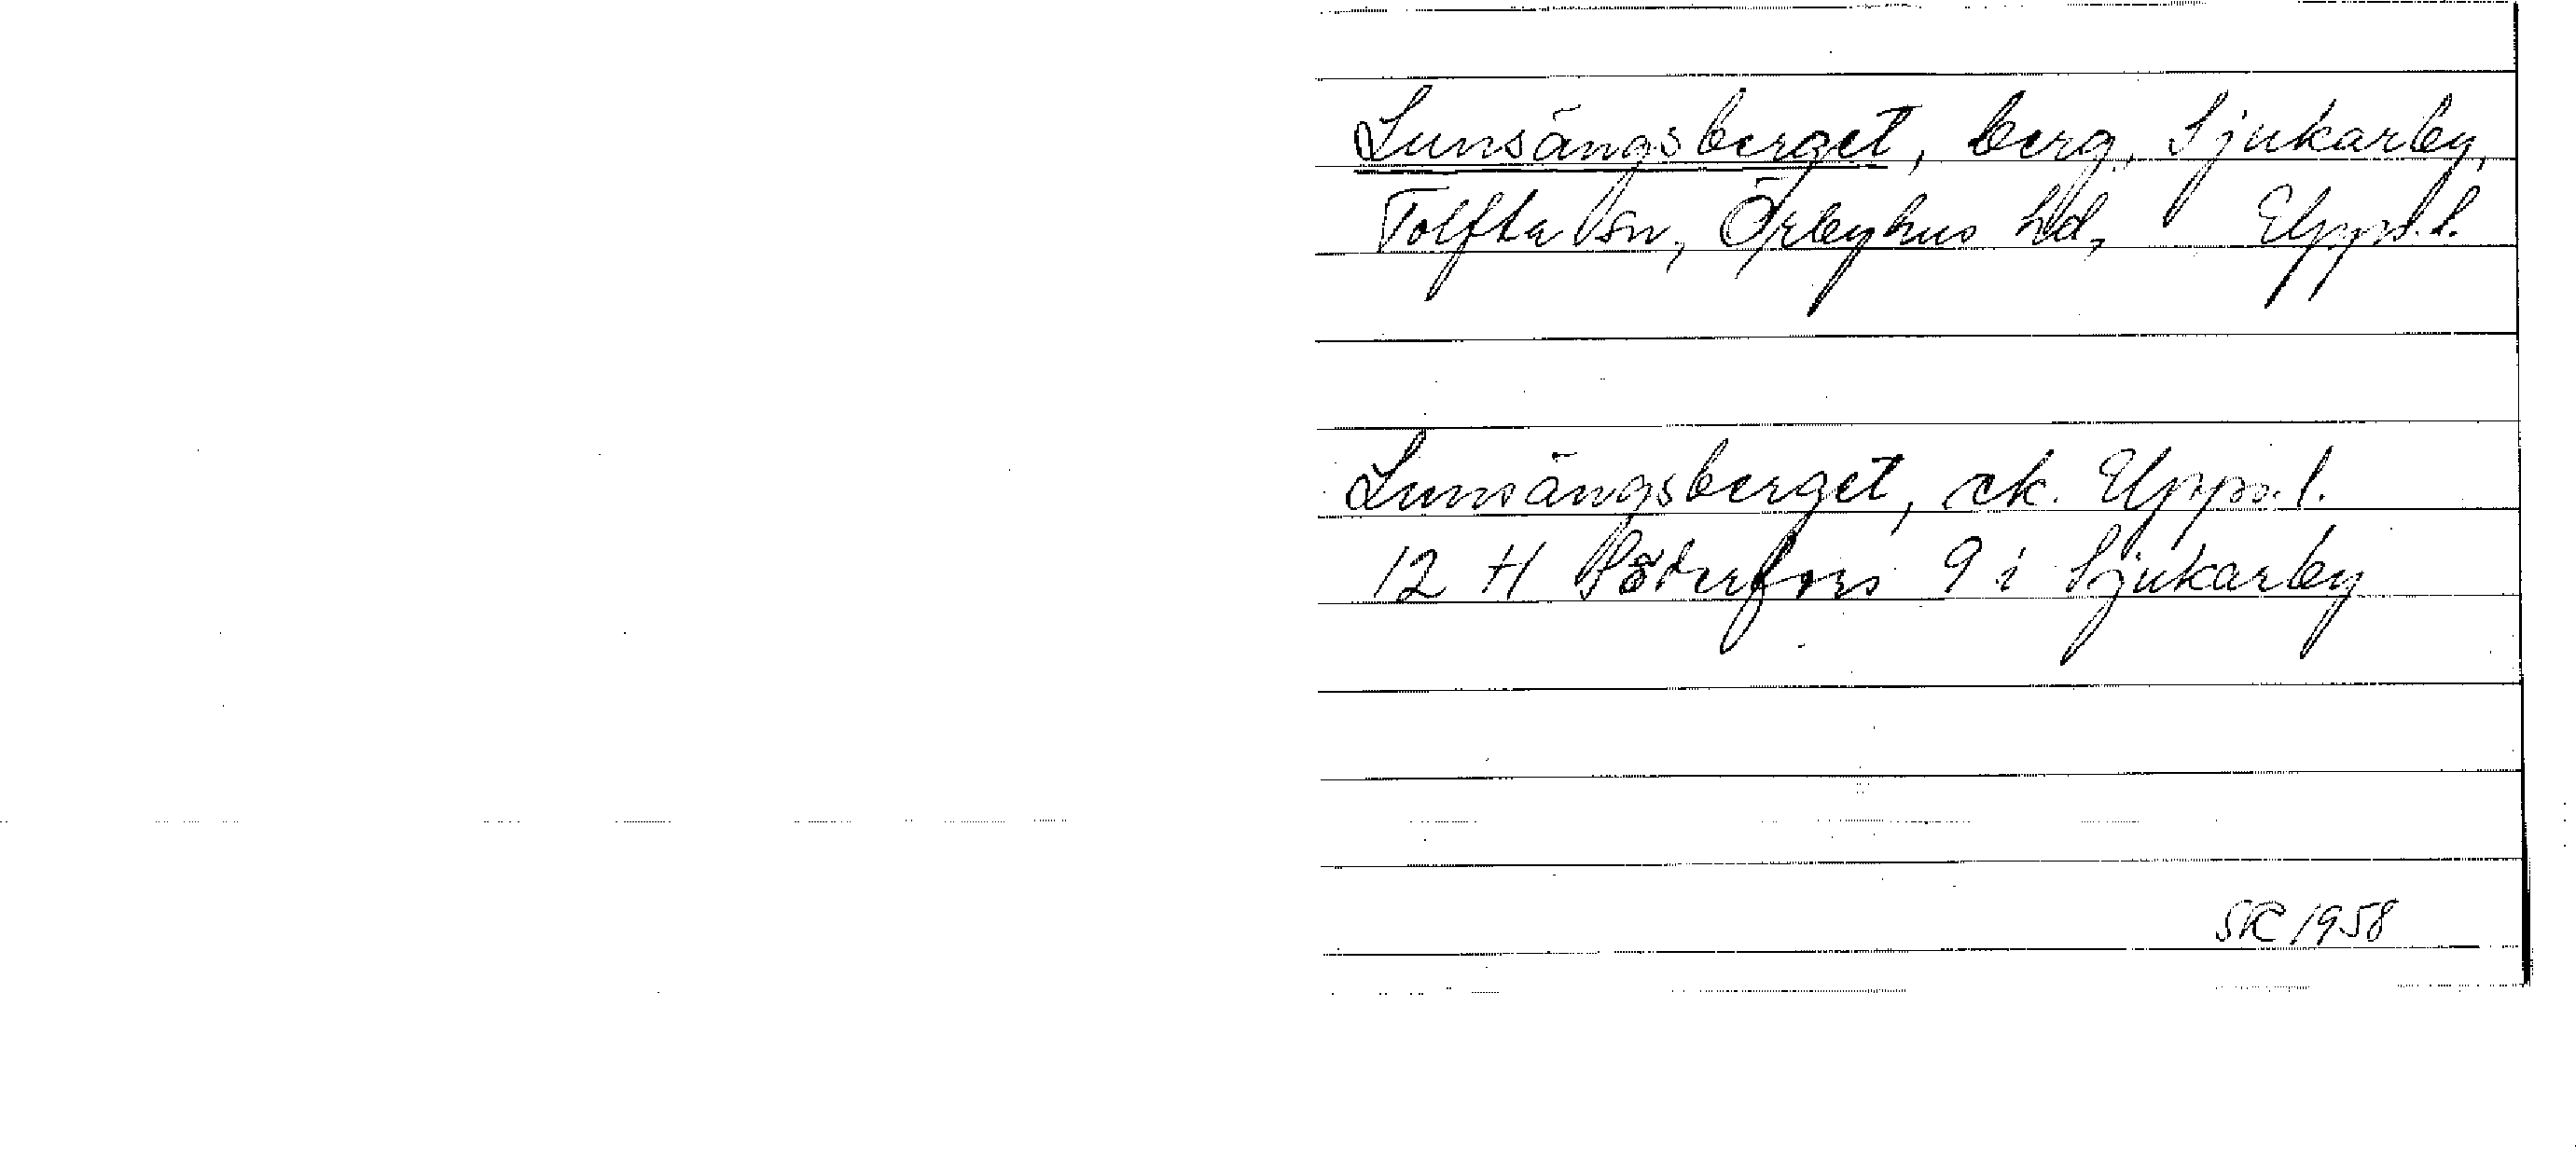 Lunsängsberget, berg, Sjukarby,
Tolfta sn, Örbyhus hd, Upps.l.
Lunsängsberget, ek. Upps.l.
12 H Söderfors 9 i Sjukarby
SK 1958